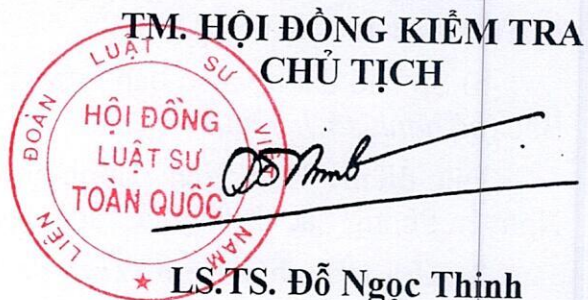 TM. HỘI ĐỒNG KIỂM TRA
CHỦ TỊCH
LIÊN ĐOÀN LUẬT SƯ VIỆT NAM
HỘI ĐỒNG
LUẬT SƯ
TOÀN QUỐC
LS.TS. Đỗ Ngọc Thịnh